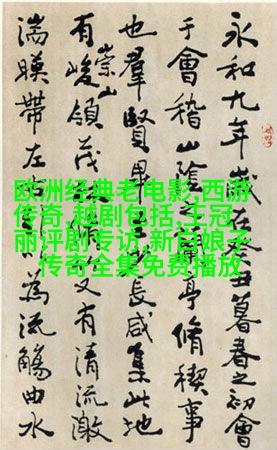 永和九年歲在癸丑暮春之初會
于會稽山陰亭脩稧事
也羣賢畢長咸集此地
有崇山峻領茂又有清流激
湍暎帶左為流觴曲水
欧洲经典老电影,西游
传奇,越剧包括,王冠
丽评剧专访,新白娘子
传奇全集免费播放